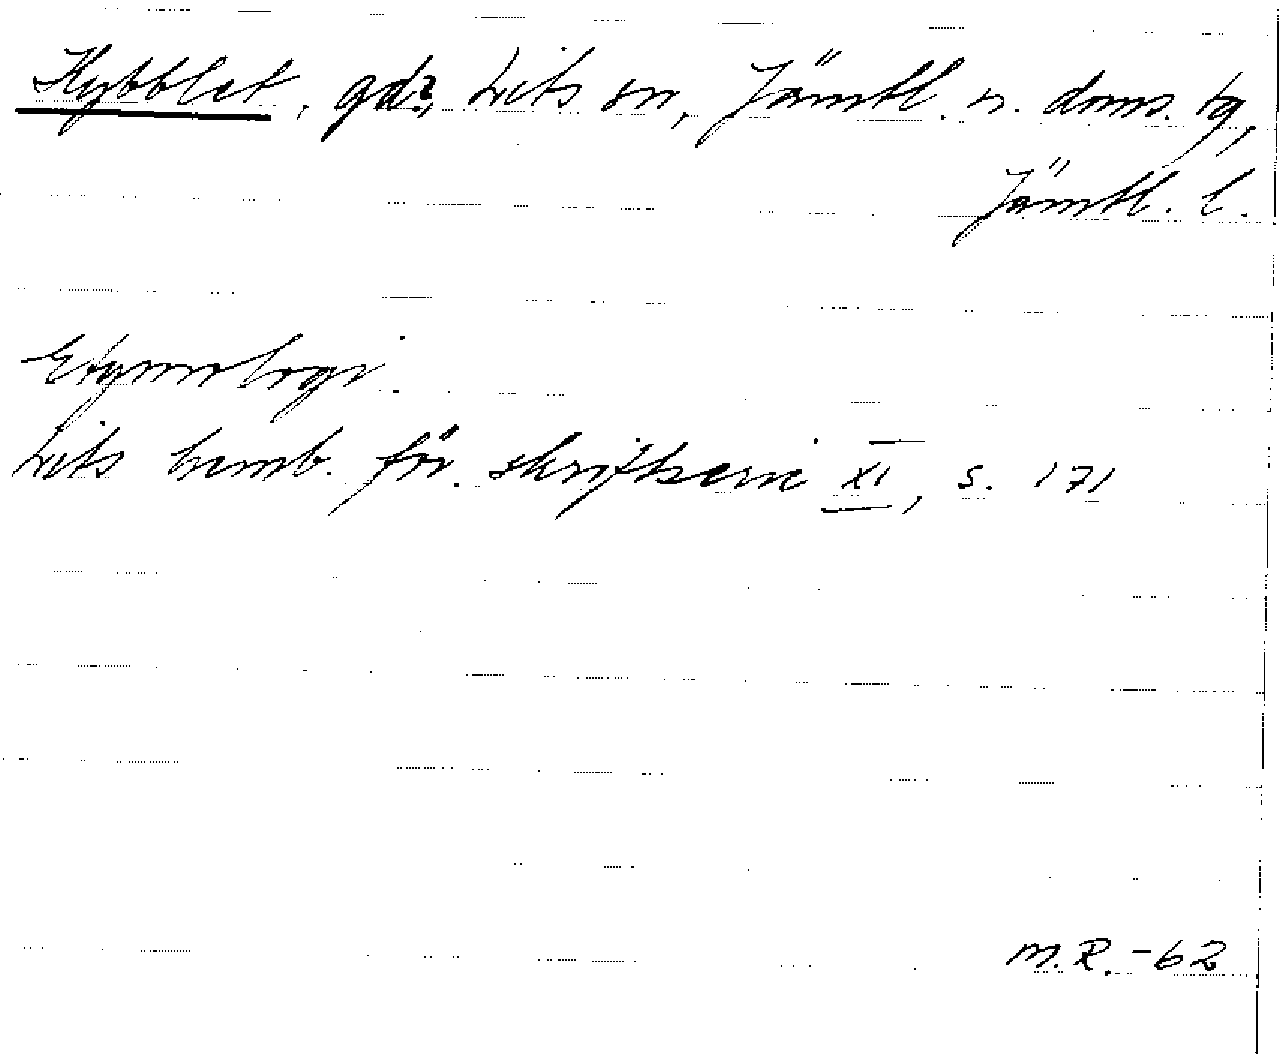 Kybblet, gd?, Lits sn, Jämtl. n. doms. tg,
Jämtl. l.
Etymologi
Lits hemb. för. skriftserie XI, s. 171
M.R.-62